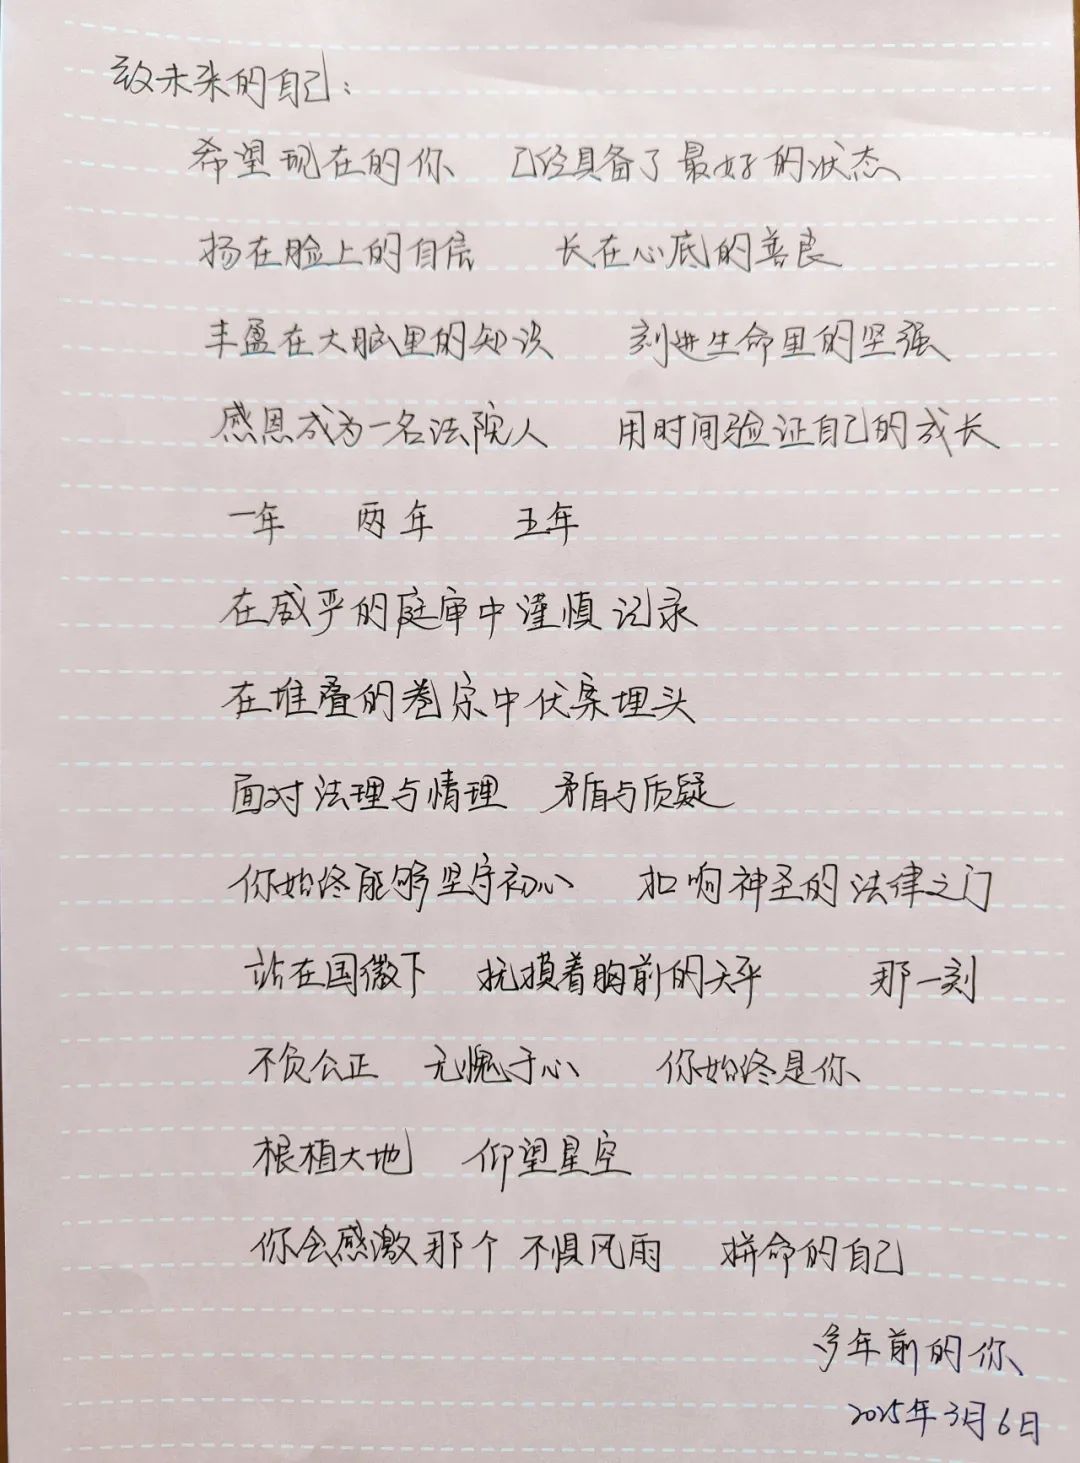 致未来的自己：
希望现在的你 已经具备了最好的状态
扬在脸上的自信 长在心底的善良
丰盈在大脑里的知识 刻进生命里的坚强
感恩成为一名法院人 用时间验证自己的成长
一年 两年 五年
在威严的庭审中谨慎记录
在堆叠的卷宗中伏案埋头
面对法理与情理 矛盾与质疑
你始终能够坚守初心 扣响神圣的法律之门
站在国徽下 抚摸着胸前的天平 那一刻
不负公正 无愧于心 你始终是你
根植大地 仰望星空
你会感激那个不惧风雨 拼命的自己
多年前的你
2025年3月6日